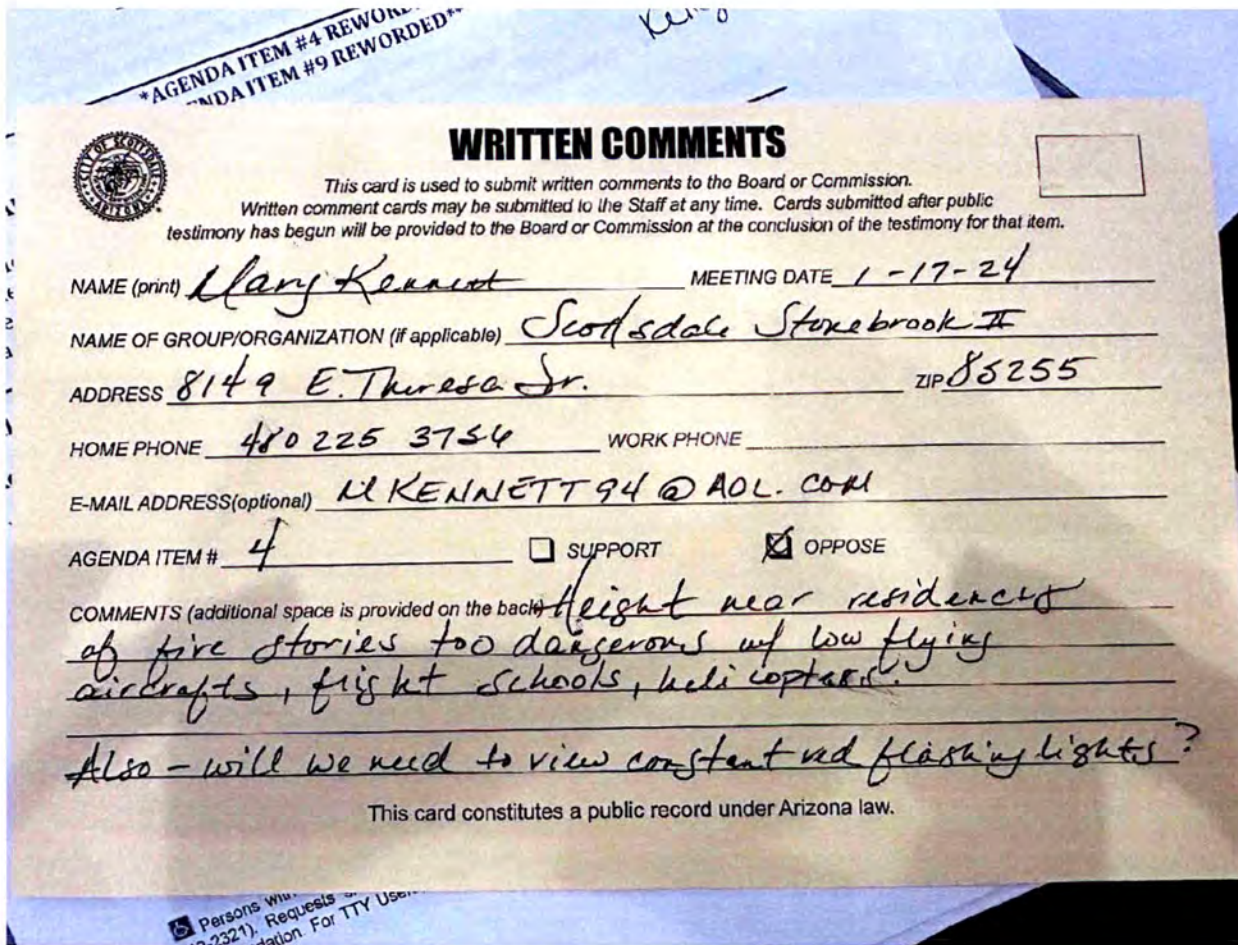 *AGENDA ITEM #4 REWORDED
NDA ITEM #9 REWORDED*
CITY OF SCOTTSDALE
ARIZONA
WRITTEN COMMENTS
This card is used to submit written comments to the Board or Commission.
Written comment cards may be submitted to the Staff at any time. Cards submitted after public
testimony has begun will be provided to the Board or Commission at the conclusion of the testimony for that item.
NAME (print) Mary Kennett MEETING DATE 1-17-24
NAME OF GROUP/ORGANIZATION (if applicable) Scottsdale Stonebrook II
ADDRESS 8149 E. Theresa Dr. ZIP 85255
HOME PHONE 480 225 3756 WORK PHONE
E-MAIL ADDRESS(optional) MKENNETT94@AOL.COM
AGENDA ITEM # 4 SUPPORT OPPOSE
COMMENTS (additional space is provided on the back) Height near residences
of five stories too dangerous w/ low flying
aircrafts, flight schools, helicopters.
Also - will we need to view constant red flashing lights?
This card constitutes a public record under Arizona law.
Persons with
2321). Requests
For TTY User